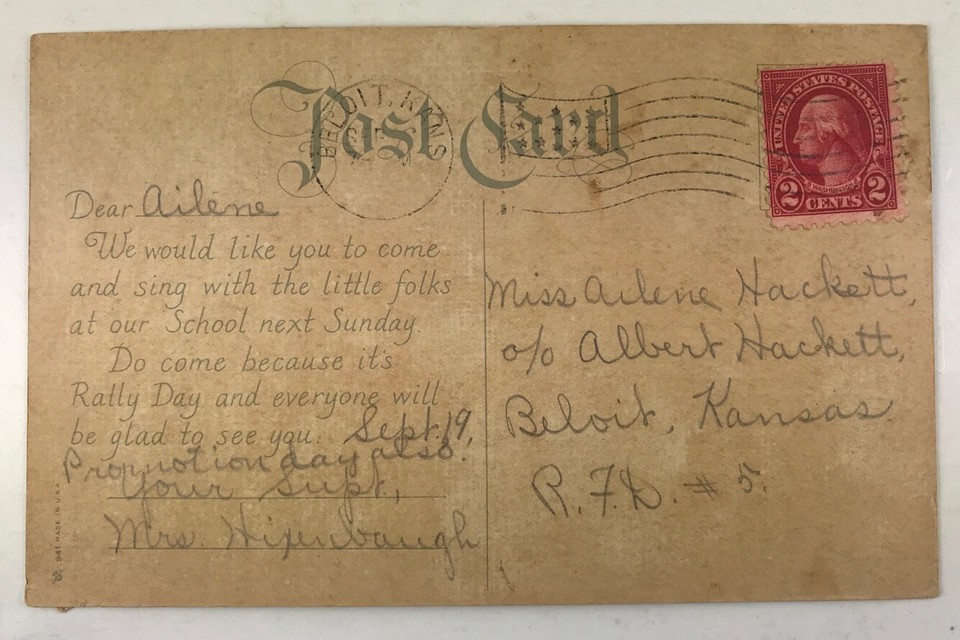 Post Card
BELOIT, KANS
UNITED STATES POSTAGE
WASHINGTON
2 CENTS 2
Dear Ailene
We would like you to come
and sing with the little folks
at our School next Sunday.
Do come because it's
Rally Day and everyone will
be glad to see you. Sept. 19,
Promotion day also.
Your Supt,
Mrs. Hixenbaugh
Miss Ailene Hackett,
c/o Albert Hackett,
Beloit, Kansas
R.F.D. # 5.
941 MADE IN U.S.A.